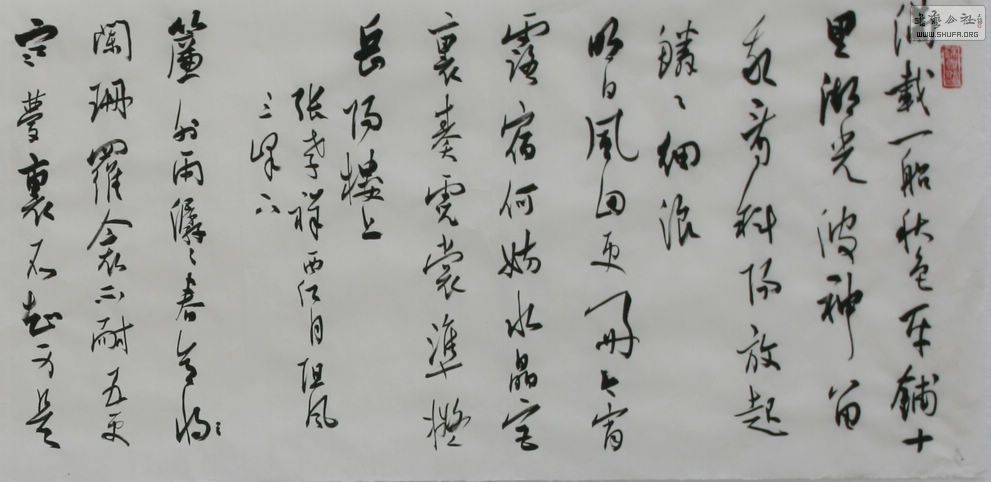 满载一船秋色平鋪十
里湖光波神留
我看斜阳放起
鳞〻细浪
明日風回更好今宵
露宿何妨水晶宫
裏奏霓裳準擬
岳阳樓上
张孝祥西江月阻风
三峰下
簾外雨潺〻春意将〻
阑珊羅衾不耐五更
寒夢裏不知身是
书艺公社
WWW.SHUFA.ORG